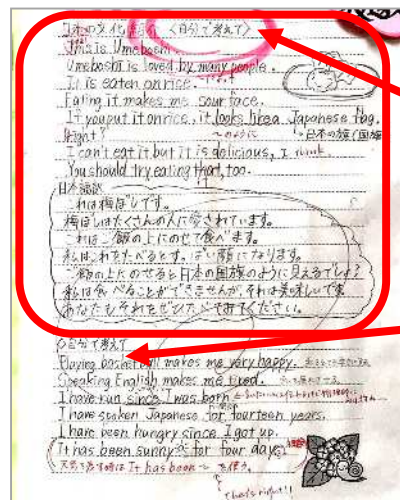 日本の文化紹介 〈自分で考えて〉
This is Umeboshi.
Umeboshi is loved by many people.
It is eaten on rice.
Eating it makes me sour face.
If you put it on rice, it looks like a Japanese flag.
Right? ～のように 日本の旗(国旗
I can't eat it but it is delicious, I think.
You should try eating that, too.
日本語訳
これは梅ぼしです。
梅ぼしはたくさんの人に愛されています。
これはご飯の上にのせて食べます。
私はこれをたべるとすっぱい顔になります。
ご飯の上にのせると日本の国旗のように見えるでしょ?
私は食べることができませんが、それは美味しいです
あなたもそれをぜひたべてみてください。
自分で考えて
Playing basketball makes me very happy.
Speaking English makes me tired.
I have run since I was born
I have spoken Japanese for fourteen years.
I have been hungry since I got up.
It has been sunny for four days.
天気を表す時は It has been ～ を使う。
that's right!!